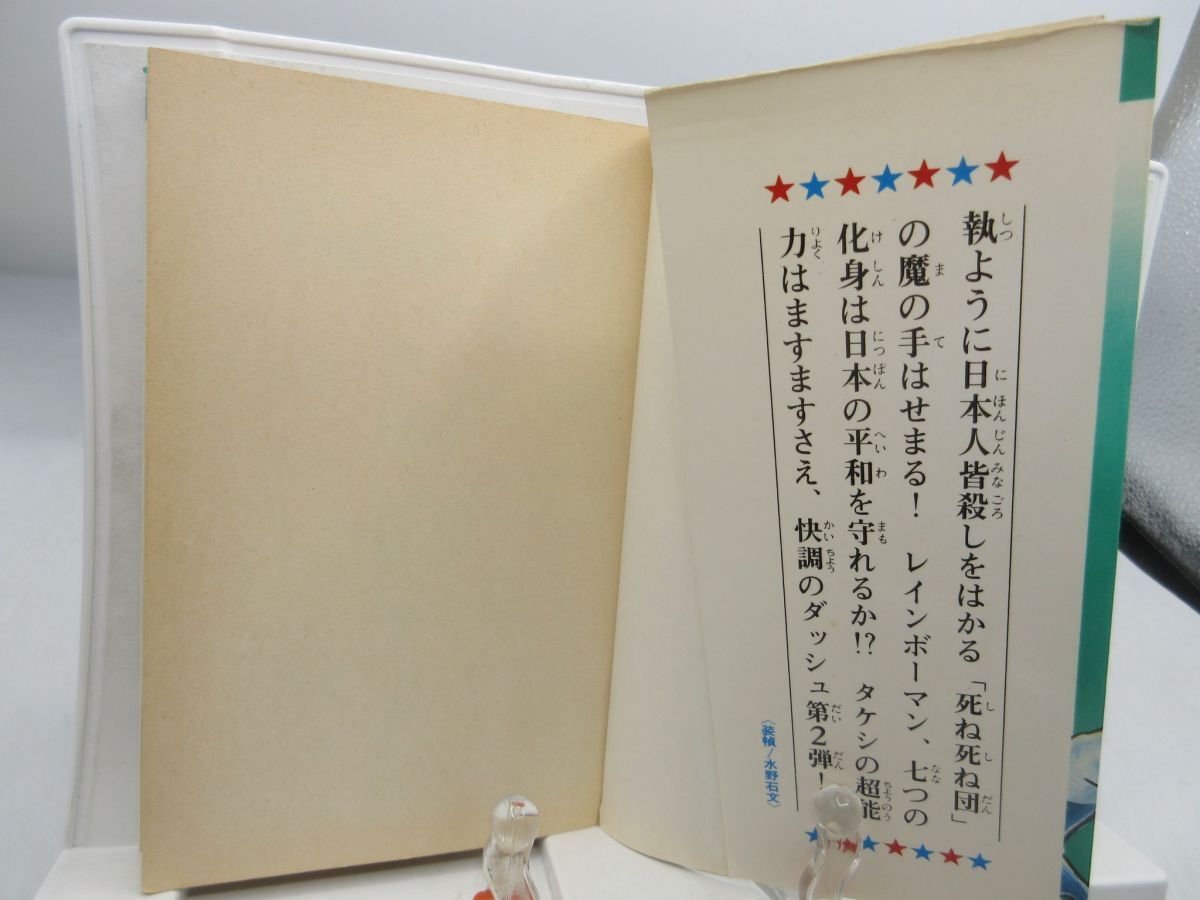 執ように日本人皆殺しをはかる「死ね死ね団」
の魔の手はせまる！　レインボーマン、七つの
化身は日本の平和を守れるか!?　タケシの超能
力はますますさえ、快調のダッシュ第2弾！
〈装幀/水野石文〉